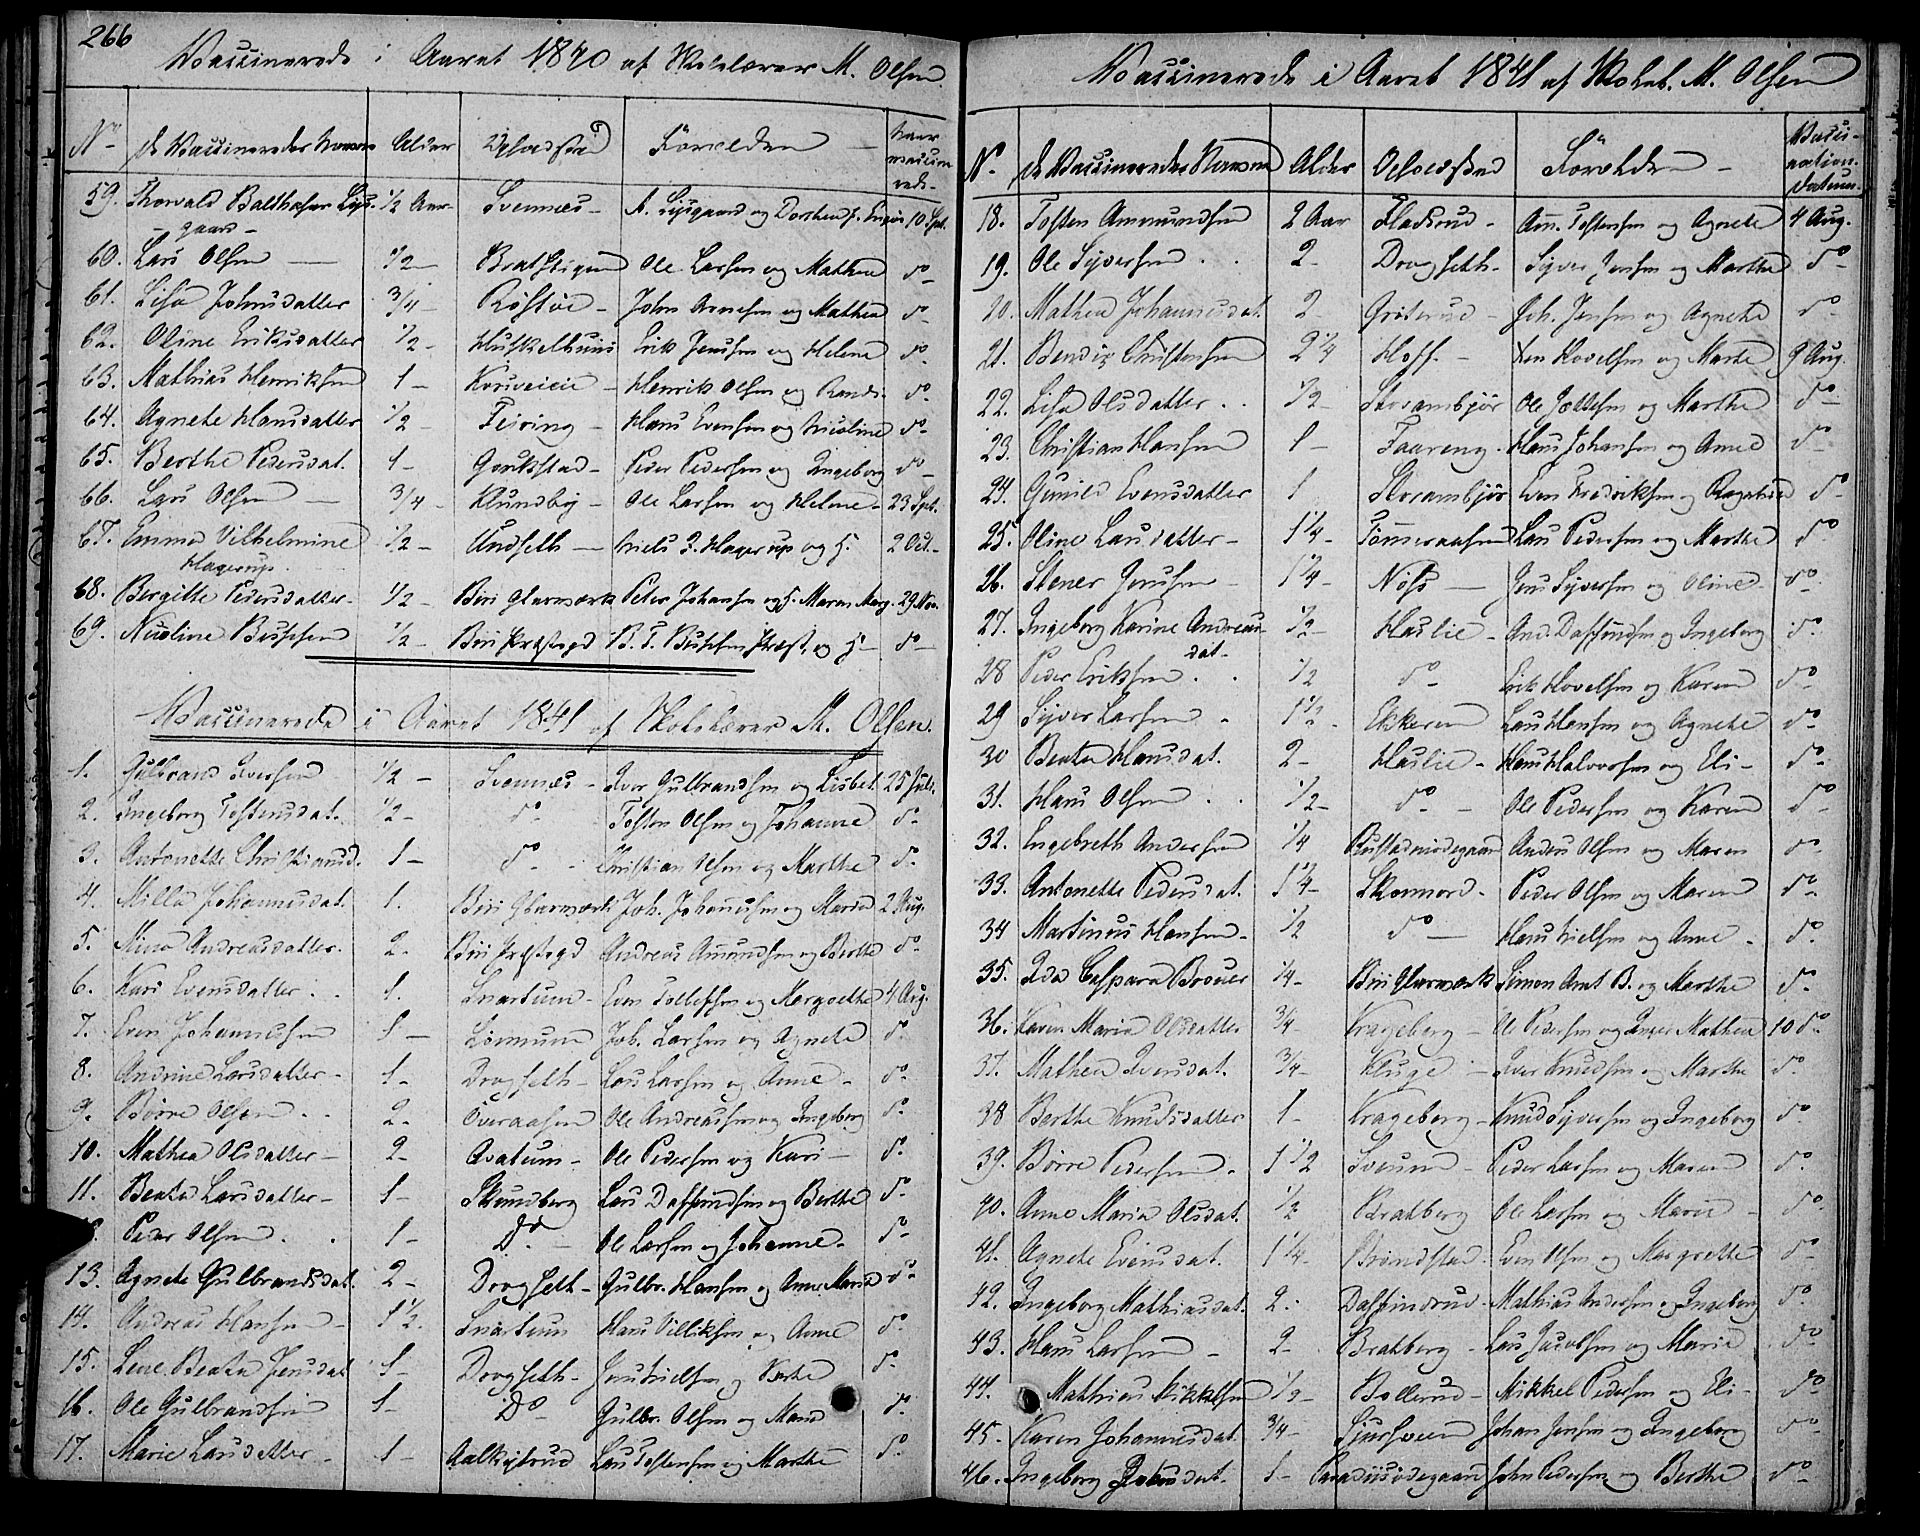 266
Vaccinerede i Aaret 1840 af Skolelærer M. Olsen
No de Vaccineredes Navne Alder Opholdsted Forældre naar vaccinerede
59. Thorvald Balthazar Lysgaard 1/2 Aar Svennæs A. Lysgaard og Dorthea f. 10 Spt.
60. Lars Olsen 1/2 Bratstigen Ole Larsen og Mathea do
61. Lisa Johnsdatter 3/4 Røstøe John Arnesen og Mathea do
62. Oline Eriksdatter 1/2 Huskelhuus Erik Jensen og Helene do
63. Mathias Henriksen 1 Korsveien Henrik Olsen og Randi do
64. Agnete Hansdatter 1/2 Feiring Hans Evensen og Nicoline do
65. Berthe Pedersdat. 1 Gaukstad Peder Pedersen og Ingeborg do
66. Lars Olsen 3/4 Klundby Ole Larsen og Helene 23 Spt.
67. Emma Vilhelmine Hagerup 1/2 Undseth Niels J. Hagerup og H. 2 Oct.
68. Birgitte Pedersdatter 1/2 Biri Glasværk Peter Johansen og H. Maren Marg. 29 Nov.
69. Nicoline Buschen 1/2 Biri Præstegd B. T. Buschen Præst, og H do
Vaccinerede i Aaret 1841 af Skolelærer M. Olsen.
1. Gulbrand Iversen 1/2 Svennæs Iver Gulbrandsen og Lisbet 25 Juli
2. Ingeborg Tostensdat. 1/2 do Tosten Olsen og Johanne do
3. Antonette Christiansd. 1 do Christian Olsen og Marthe do
4. Milla Johannesdat. 1. Biri Glasværk Joh. Johannesen og Maria 2 Aug.
5. Nina Andreasdatter 2 Biri Præstegd Andreas Amundsen og Berthe do
6. Kari Evensdatter 1. Snartum Even Tollefsen og Margrethe 4 Aug.
7. Even Johannesen 1 Lønnum Joh. Larsen og Agnete do
8. Andrine Larsdatter 1 Dragseth Lars Larsen og Anne do
9. Børre Olsen 2 Overaasen Ole Andreasen og Ingeborg do
10. Mathea Olsdatter 2 Svatum Ole Pedersen og Kari do
11. Beata Larsdatter 1 Skundberg Lars Daffindsen og Berthe do
12. Peder Olsen 1 Do Ole Larsen og Johanne do
13. Agnete Gulbrandsdat. 2 Dragseth Gulbr. Hansen og Anne Maria do
14. Andreas Hansen 1 1/2 Snartum Hans Villiksen og Anne do
15. Lene Beata Jensdat 1 Dragseth Jens Nielsen og Berthe do
16. Ole Gulbrandsen 1 Do Gulbr. Olsen og Maria do
17. Marie Larsdatter 1 Aalkistrud Lars Tostensen og Marthe do
Vaccinerede i Aaret 1841 af Skoleb. M. Olsen
No de Vaccineredes Navne Alder Opholdsted Forældre Vaccinationsdatum
18. Tosten Ammundsen 2 Aar Fladsrud Am. Tostensen og Agnete 4 Aug.
19. Ole Syversen 2 Dragseth Syver Jensen og Marthe do
20. Mathea Johannesdat. 2 Griterud Joh. Jensen og Agnete do
21. Bendix Christensen 2 1/4 Hoff Hovelsen og Marte 9 Aug.
22. Lisa Olsdatter 1/2 Skrambjør Ole Jottesen og Marthe do
23. Christian Hansen 1 Taareng Hans Johansen og Anne do
24. Gunild Evensdatter 1 Skrambjør Even Fredriksen og Ragnhild do
25. Oline Larsdatter 1 1/4 Tømmeraasen Lars Pedersen og Marthe do
26. Stener Jensen 1 1/4 Nøss Jens Syversen og Oline do
27. Ingeborg Karine Andreasdat. 1/2 Haslie And. Daffindsen og Ingeborg do
28 Peder Eriksen 1/2 do Erik Hovelsen og Karen do
29 Syver Larsen 1 1/2 Ekkeren Lars Hansen og Agnete do
30 Beata Hansdat. 2 Haslie Hans Halvorsen og Eli do
31. Hans Olsen 1/2 do Ole Pedersen og Karen do
32. Ingebreth Andersen 1/4 Rustadødegaard Anders Olsen og Maren do
33. Antonette Pedersdat. 1 1/4 Skonnord Peder Olsen og Maren do
34 Martinus Hansen 1/2 do Hans Nielsen og Anne do
35. Ida Caspara Brouer 1/4 Biri Glasværk Simon Arnt B. og Marthe do
36. Karen Maria Olsdatter 3/4 Krageberg Ole Pedersen og Inger Mathea 10 do
37. Mathea Iversdat. 3/4 Kluge Iver Knudsen og Marthe do
38 Berthe Knudsdatter 1 Krageberg Knud Syversen og Ingeborg do
39. Børre Pedersen 1 1/2 Sveum Peder Larsen og Maren do
40. Anne Maria Olsdat. 1/2 Bratberg Ole Larsen og Marie do
41. Agnete Evensdat. 1 1/4 Brøndstad Even Olsen og Margrethe do
42. Ingeborg Mathiasdat. 2. Daffindrud Mathias Andersen og Ingeborg do
43. Hans Larsen 2 Bratberg Lars Jacobsen og Marie do
44. Mathias Mikkelsen 1/2 Bollerud Mikkel Pedersen og Eli do
45. Karen Johannesdat. 3/4 Sjursveen Johan Jensen og Ingeborg do
46. Ingeborg Johnsdat. 1 Paradiisødegaard John Pedersen og Berthe do